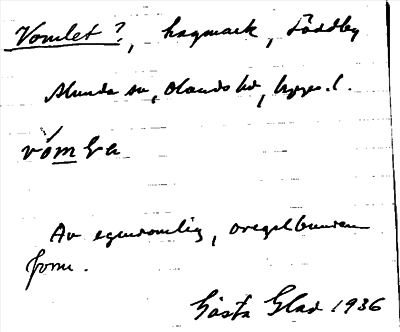 Vomlet?, hagmark, Söddby
Alunda sn, Olands hd, Upps. l.
vómLa
Av egendomlig, oregelbunden
form.
Gösta Glad 1936